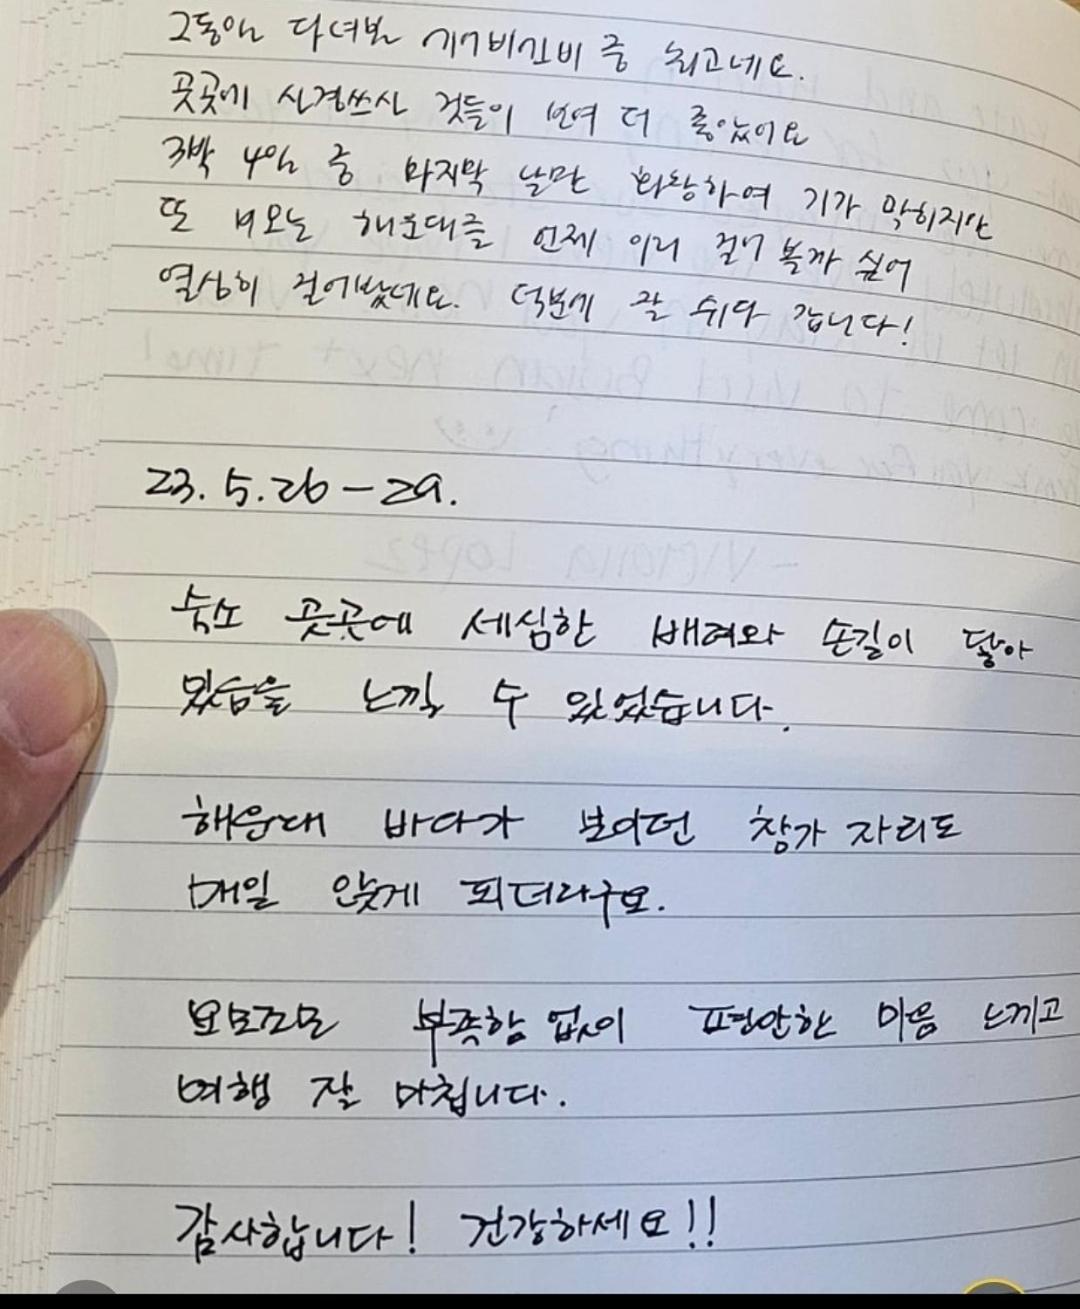 그동안 다녀본 에어비앤비 중 최고네요.
곳곳에 신경쓰신 것들이 보여 더 좋았어요
3박 4일 중 마지막 날만 화창하여 기가 막히지만
또 비오는 해운대를 언제 이리 걸어 볼까 싶어
열심히 걸어봤네요. 덕분에 잘 쉬다 갑니다!
23.5.26-29.
숙소 곳곳에 세심한 배려와 손길이 닿아
있음을 느낄 수 있었습니다.
해운대 바다가 보이던 창가 자리도
매일 앉게 되더라구요.
요모조모 부족함 없이 편안한 마음 느끼고
여행 잘 마칩니다.
감사합니다! 건강하세요!!